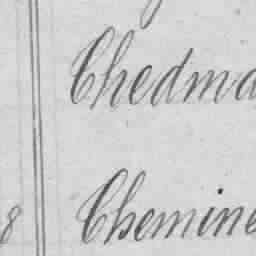 Chedma
8 Chemine